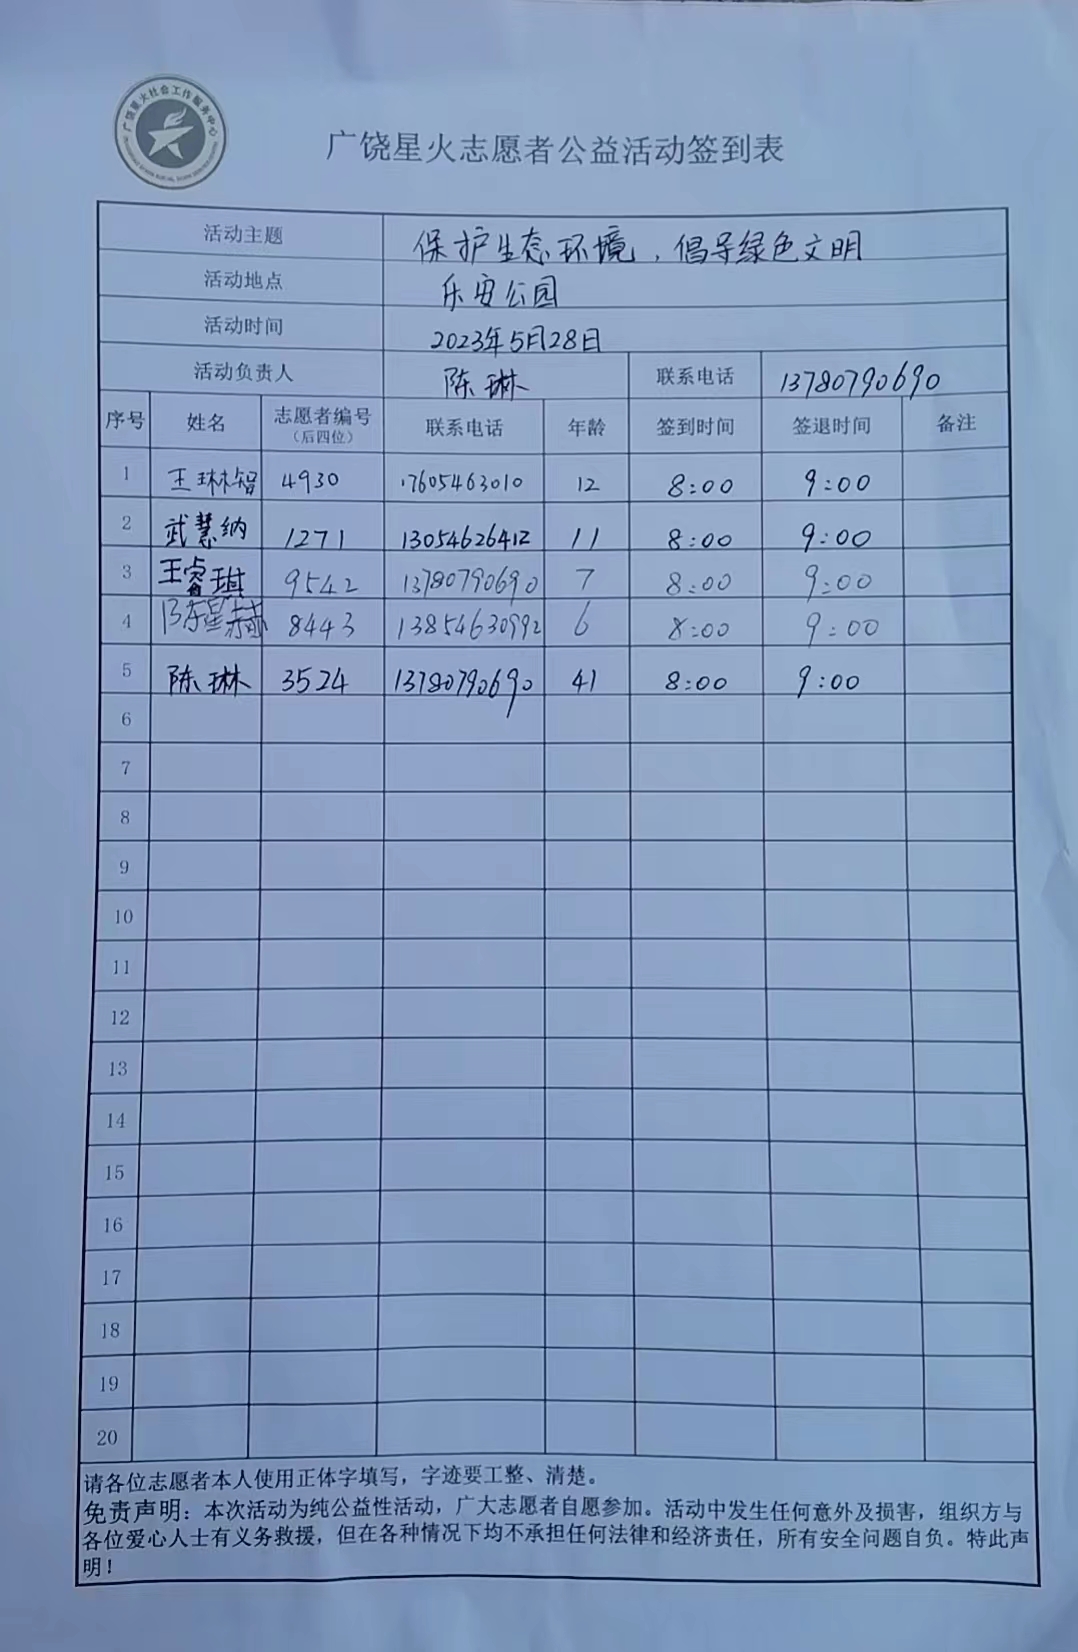 广饶星火社会工作服务中心
广饶星火志愿者公益活动签到表
活动主题 保护生态环境、倡导绿色文明
活动地点 乐安公园
活动时间 2023年5月28日
活动负责人 陈琳 联系电话 13780790690
序号 姓名 志愿者编号（后四位） 联系电话 年龄 签到时间 签退时间 备注
1 王琳智 4930 17605463010 12 8:00 9:00
2 武慧纳 1271 13054626412 11 8:00 9:00
3 王睿琪 9542 13780790690 7 8:00 9:00
4 陈星赫 8443 13854630992 6 8:00 9:00
5 陈琳 3524 13780790690 41 8:00 9:00
6
7
8
9
10
11
12
13
14
15
16
17
18
19
20
请各位志愿者本人使用正体字填写，字迹要工整、清楚。
免责声明：本次活动为纯公益性活动，广大志愿者自愿参加。活动中发生任何意外及损害，组织方与
各位爱心人士有义务救援，但在各种情况下均不承担任何法律和经济责任，所有安全问题自负。特此声
明！